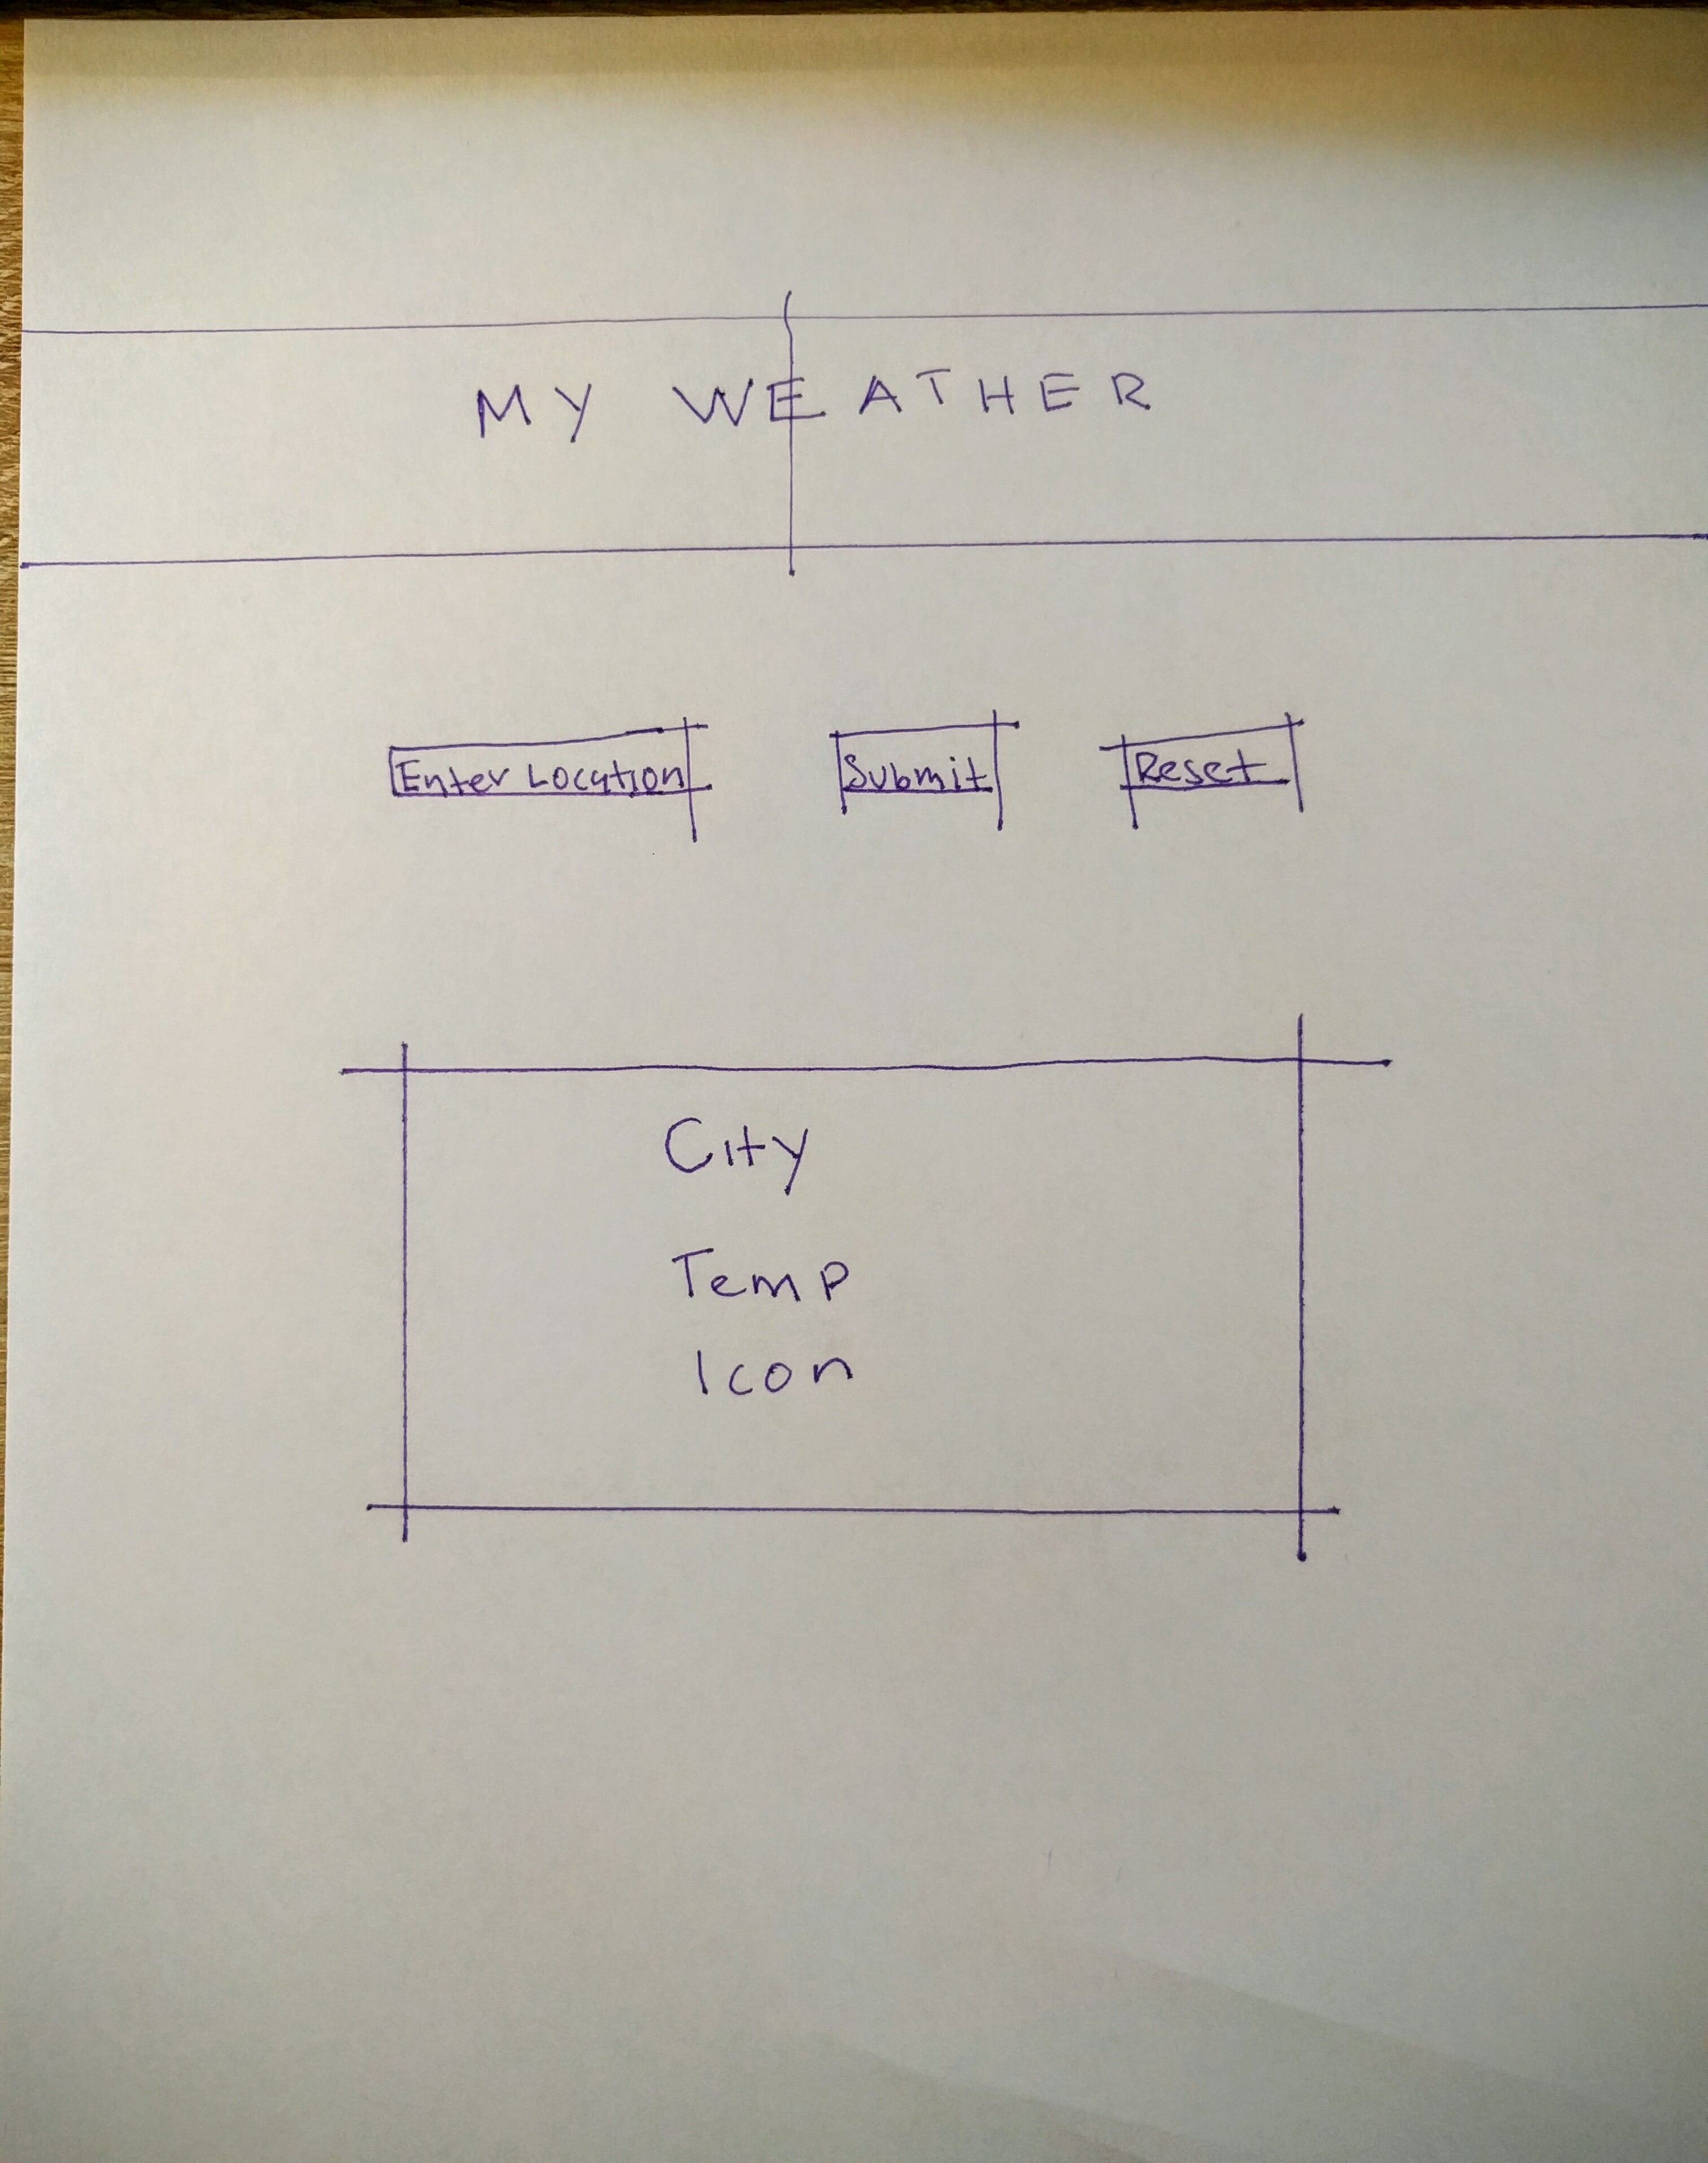 MY WEATHER
Enter Location Submit Reset
City
Temp
Icon